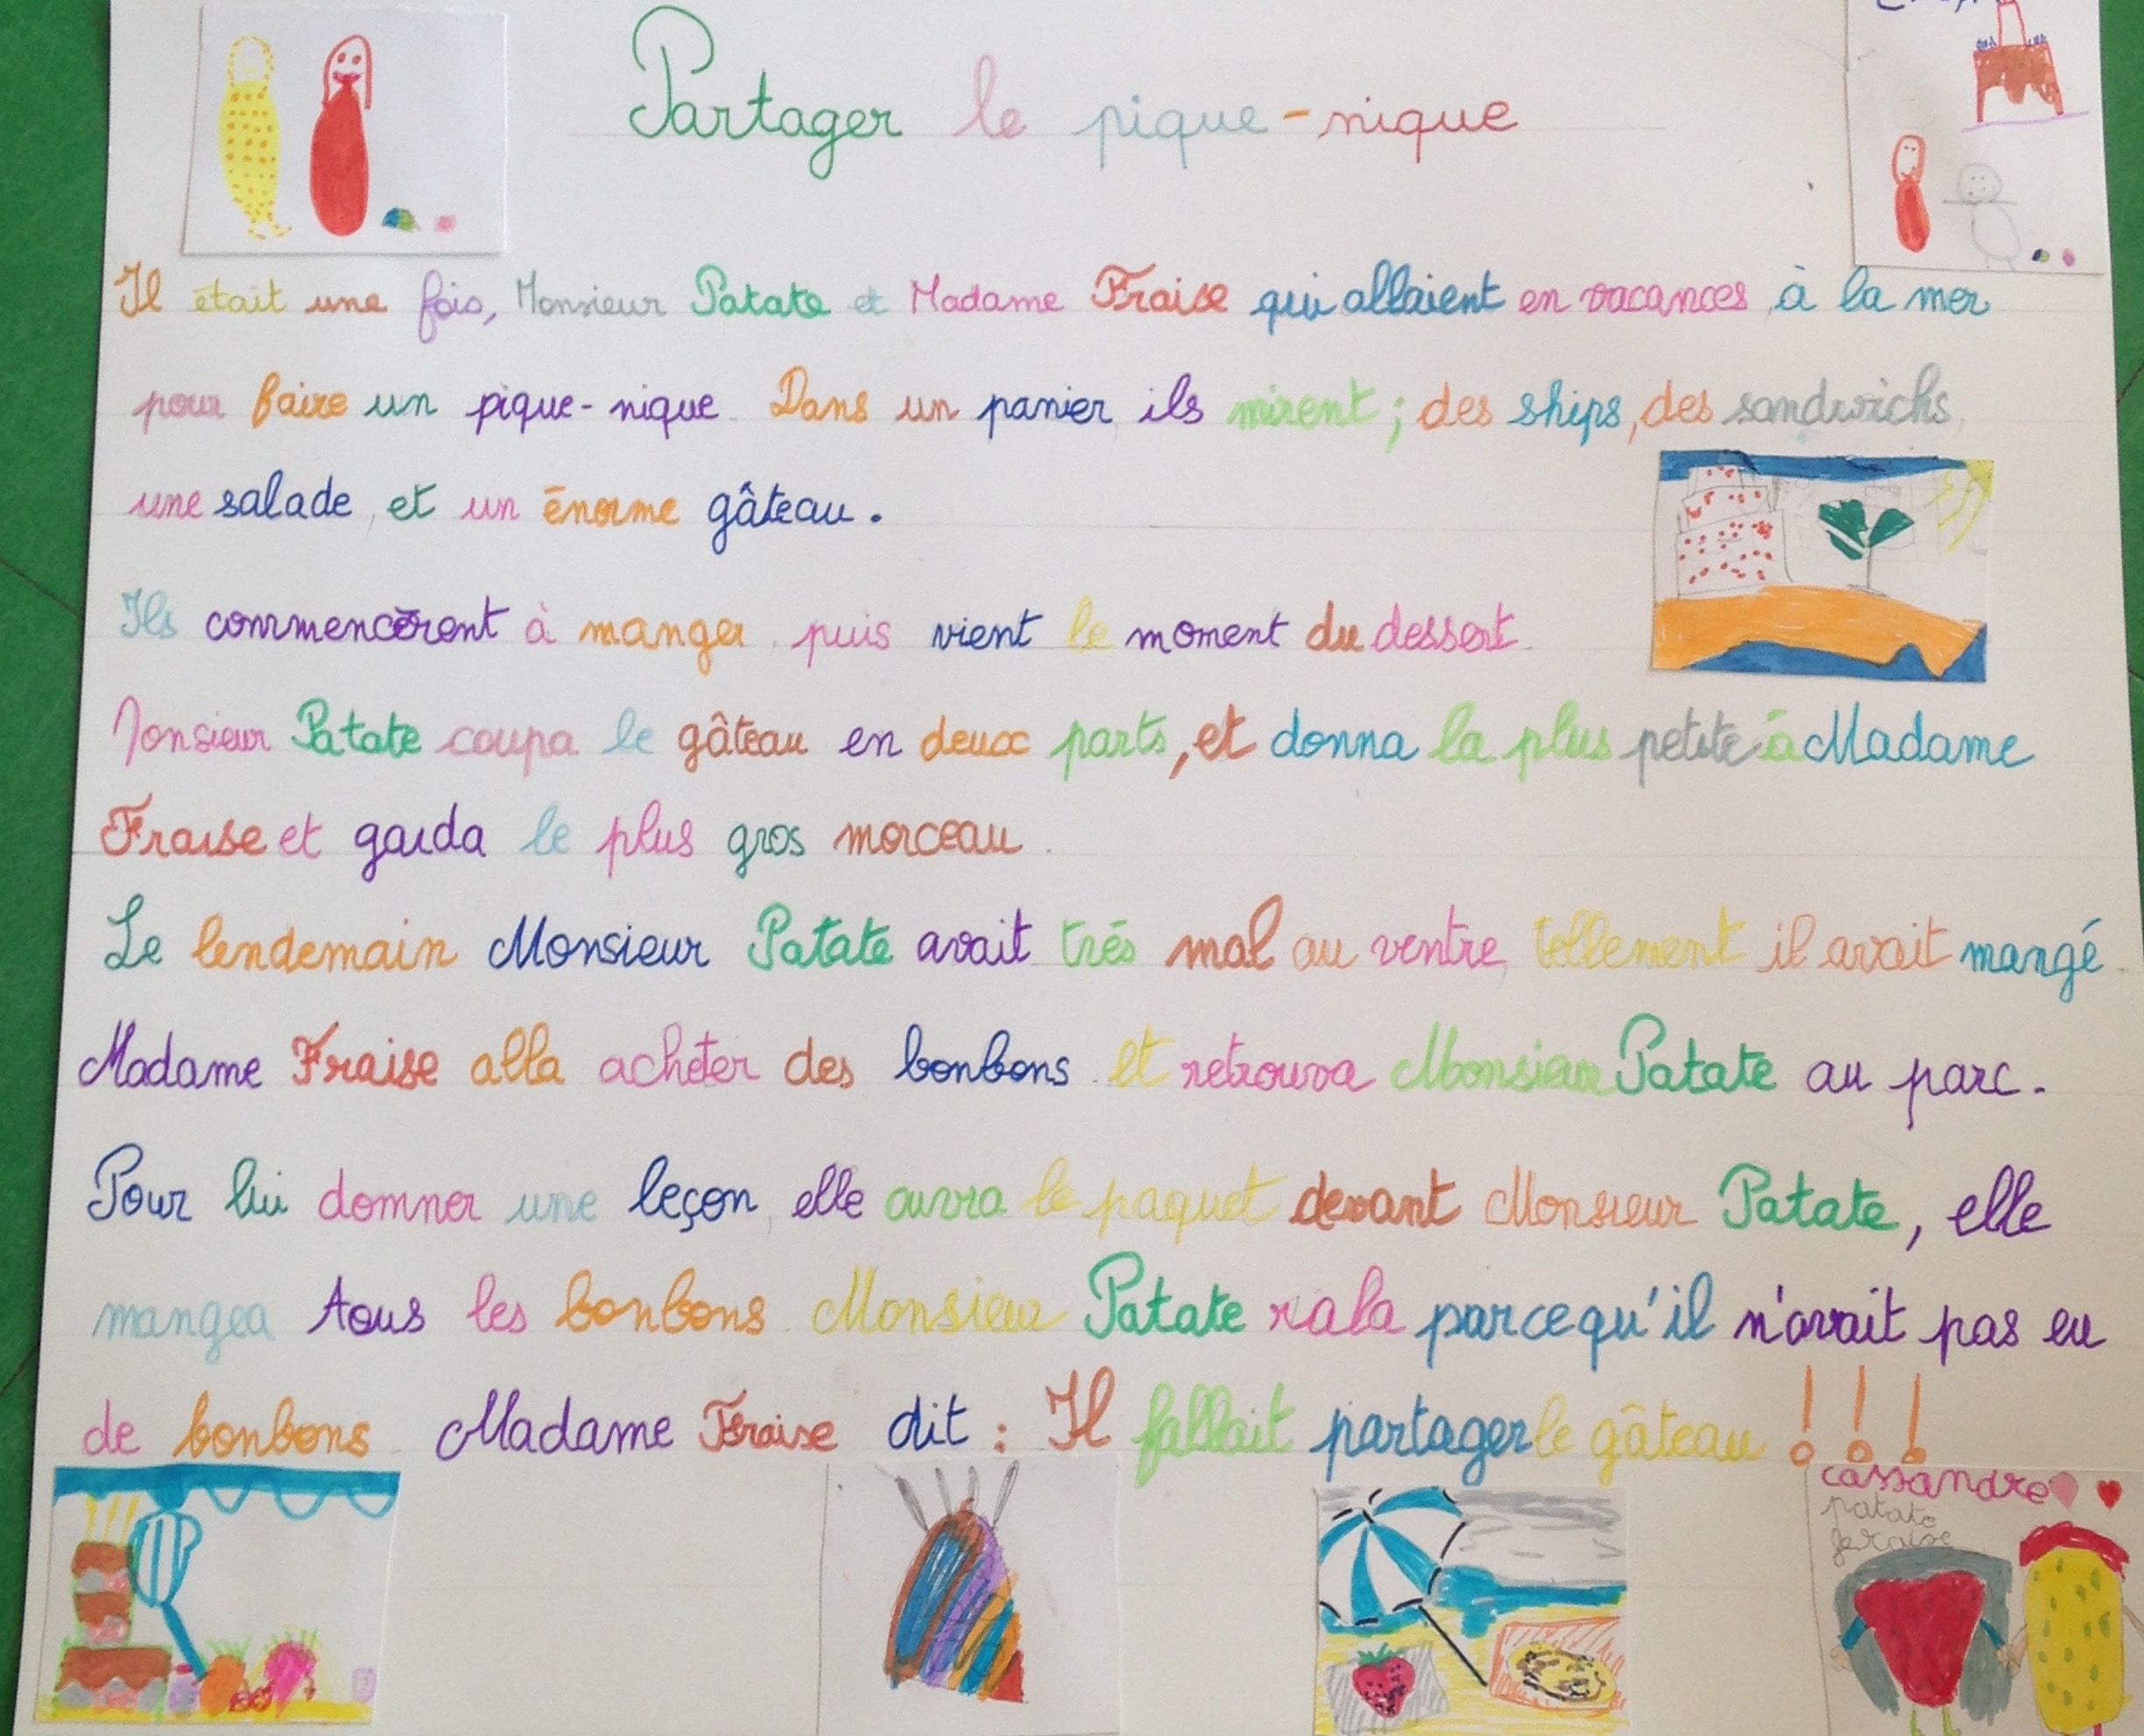 Partager le pique-nique
Il était une fois, Monsieur Patate et Madame Fraise qui allaient en vacances à la mer
pour faire un pique-nique. Dans un panier ils mirent ; des ships, des sandwichs,
une salade, et un énorme gâteau.
Ils commencèrent à manger, puis vient le moment du dessert.
Monsieur Patate coupa le gâteau en deux parts, et donna la plus petite à Madame
Fraise et garda le plus gros morceau.
Le lendemain Monsieur Patate avait trés mal au ventre, tellement il avait mangé.
Madame Fraise alla acheter des bonbons et retrouva Monsieur Patate au parc.
Pour lui domner une leçon, elle ouvra le paquet devant Monsieur Patate, elle
mangea tous les bonbons. Monsieur Patate rala parcequ'il n'avait pas eu
de bonbons. Madame Fraise dit : Il fallait partager le gâteau !!!
cassandre
patate
fraise